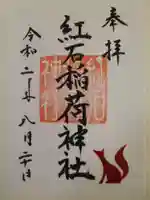 奉拝
紅石稲荷神社
令和二年八月二十日